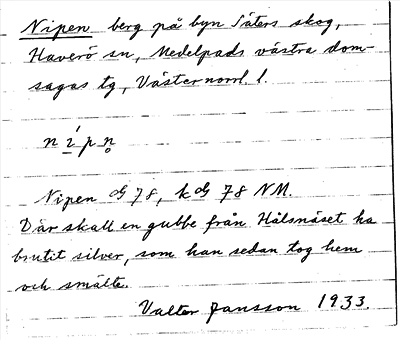 Nipen berg på byn Säters skog,
Haverö sn, Medelpads västra dom-
sagas tg, Västernorrl. l.
n í p n̥
Nipen 78, k 78 NM.
Där skall en gubbe från Hålsnäset ha
brutit silver, som han sedan tog hem
och smälte.
Valter Jansson 1933.